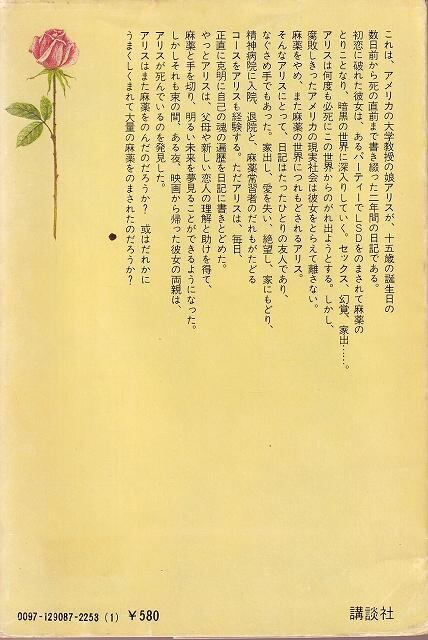 これは、アメリカの大学教授の娘アリスが、十五歳の誕生日の
数日前から死の直前まで書き綴った二年間の日記である。
初恋に破れた彼女は、あるパーティーでLSDをのまされて麻薬の
とりことなり、暗黒の世界に深入りしていく。セックス、幻覚、家出……。
アリスは何度も必死にこの世界からのがれ出ようとする。しかし、
腐敗しきったアメリカの現実社会は彼女をとらえて離さない。
麻薬をやめ、また麻薬の世界につれもどされるアリス。
そんなアリスにとって、日記はたったひとりの友人であり、
なぐさめ手でもあった。家出し、愛を失い、絶望し、家にもどり、
精神病院に入院、退院と、麻薬常習者のだれもがたどる
コースをアリスも経験する。ただアリスは、毎日、
正直に克明に自己の魂の遍歴を日記に書きとどめた。
やっとアリスは、父母や新しい恋人の理解と助けを得て、
麻薬と手を切り、明るい未来を夢見ることができるようになった。
しかしそれも束の間、ある夜、映画から帰った彼女の両親は、
アリスが死んでいるのを発見した。
アリスはまた麻薬をのんだのだろうか？ 或はだれかに
うまくしくまれて大量の麻薬をのまされたのだろうか？
0097-129087-2253 (1) ￥580
講談社